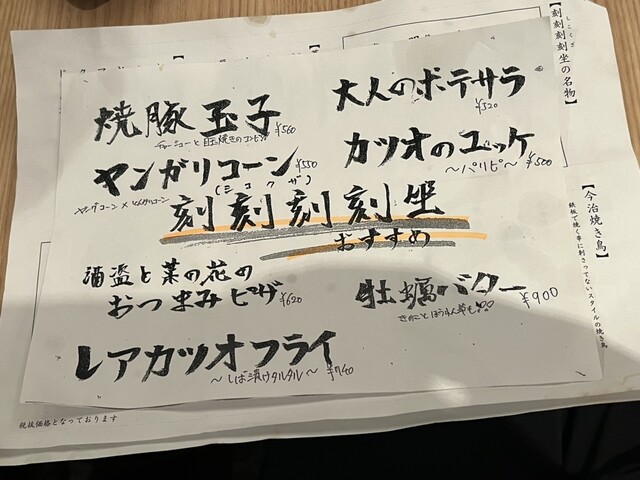 大人のポテサラ
¥520
焼豚玉子
チャーシューと目玉焼きのコンビ ¥560
カツオのユッケ
〜パリピ〜 ¥500
ヤンガリコーン ¥550
ヤングコーン×
(シコクザ)
刻刻刻刻坐
おすすめ
酒盗と菜の花の
おつまみピザ ¥620
牡蠣バター
きのことほうれん草も ¥900
レアカツオフライ
〜しば漬けタルタル〜 ¥740
しこくざ
【刻刻刻刻坐の名物】
【今治焼き鳥】
鉄板で焼く串に刺さってないスタイルの焼き鳥
税抜価格となっております